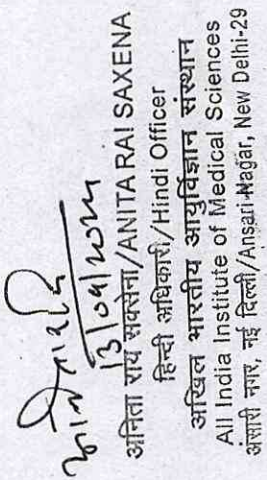 13/09/2021
अनिता राय सक्सेना/ANITA RAI SAXENA
हिन्दी अधिकारी/Hindi Officer
अखिल भारतीय आयुर्विज्ञान संस्थान
All India Institute of Medical Sciences
अंसारी नगर, नई दिल्ली/Ansari Nagar, New Delhi-29